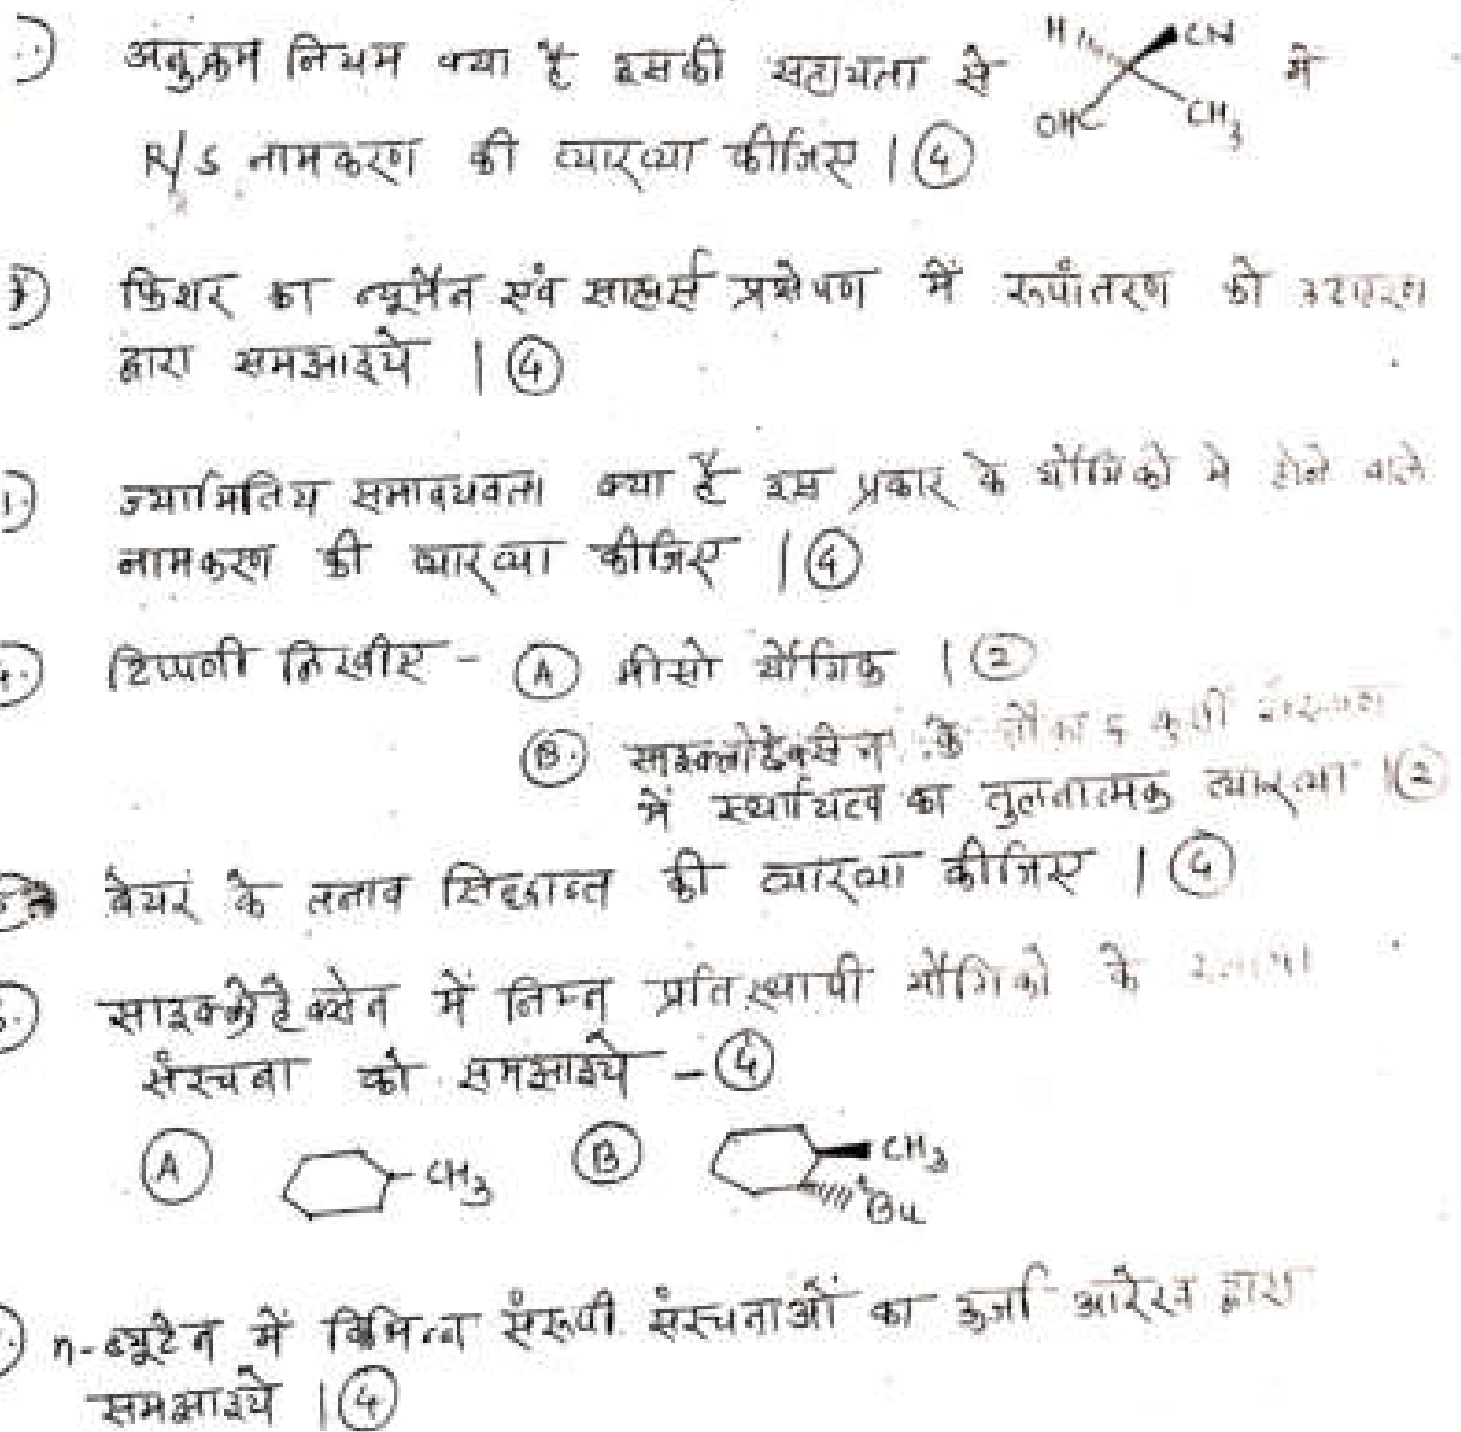 अनुक्रम नियम क्या है इसकी सहायता से H CN OHC CH3 में
R/S नामकरण की व्याख्या कीजिए | 4
फिशर का न्यूमैन एंव साहार्स प्रक्षेपण में रूपांतरण को उदाहरण
द्वारा समझाइये | 4
ज्यामितिय समावयवता क्या है इस प्रकार के यौगिको मे होने वाले
नामकरण की व्याख्या कीजिए | 4
टिप्पणी लिखीए - A मीसो यौगिक | 2
B. साइक्लोहेक्सेन के नौका कुर्सी
में स्थायित्व का तुलनात्मक व्याख्या | 2
बेयर के तनाव सिद्धान्त की व्याख्या कीजिए | 4
साइक्लोहेक्सेन में निम्न प्रतिस्थापी यौगिको के
संरचना को समझाइये - 4
A CH3 B CH3
tBu
n-ब्यूटेन में विभिन्न संरूपी संरचनाओं का ऊर्जा आरेख द्वारा
समझाइये | 4